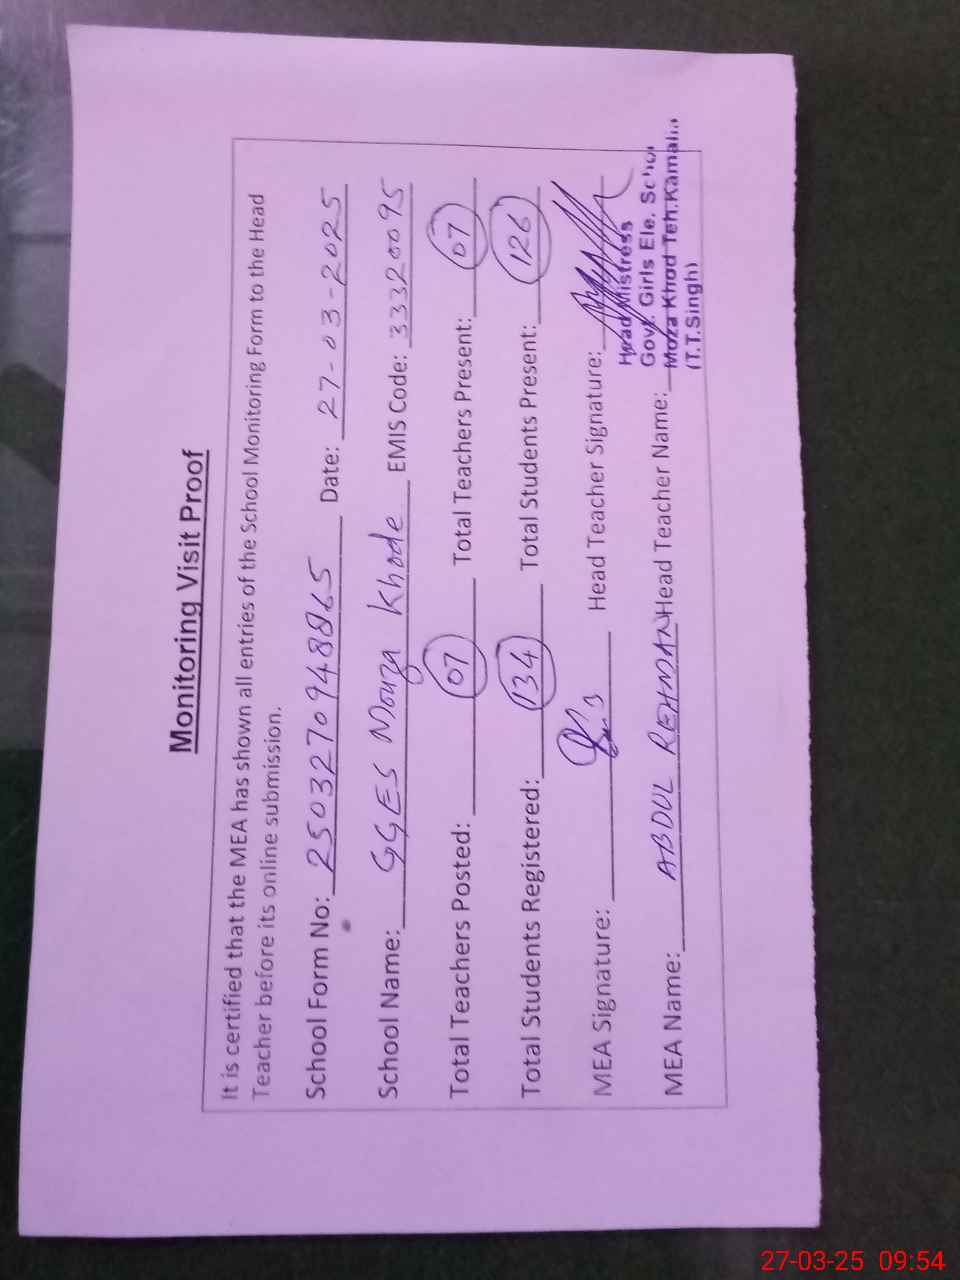 Monitoring Visit Proof
It is certified that the MEA has shown all entries of the School Monitoring Form to the Head
Teacher before its online submission.
School Form No: 2503270948865 Date: 27-03-2025
School Name: GGES Mouza Khode EMIS Code: 33320095
Total Teachers Posted: 07 Total Teachers Present: 07
Total Students Registered: 134 Total Students Present: 126
MEA Signature: Head Teacher Signature:
MEA Name: ABDUL REHMAN Head Teacher Name:
Head Mistress
Govt. Girls Ele. School
Moza Khod Teh. Kamalia
(T.T.Singh)
27-03-25 09:54